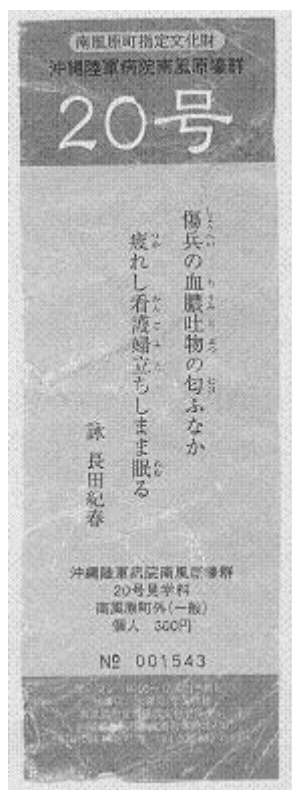 南風原町指定文化財
沖縄陸軍病院南風原壕群
20号
傷兵の血膿吐物の匂ふなか
疲れし看護婦立ちしまま眠る
詠 長田紀春
沖縄陸軍病院南風原壕群
20号見学料
南風原町外(一般)
個人 300円
№ 001543